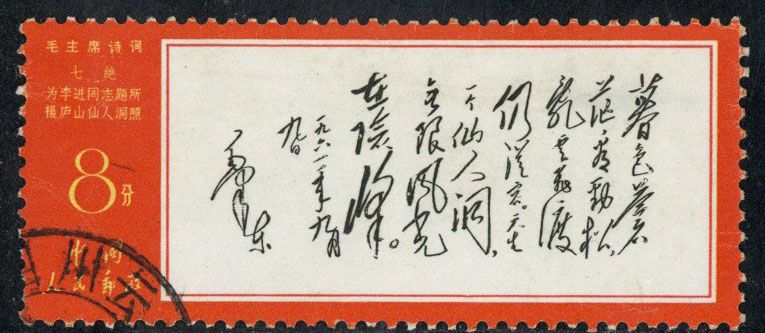 毛主席诗词
七绝
为李进同志题所
摄庐山仙人洞照
8分
中国
人民邮政
暮色苍
茫看劲松，
乱云飞渡
仍从容。天生
一个仙人洞，
无限风光
在险峰。
一九六一年九月
九日
毛泽东
云